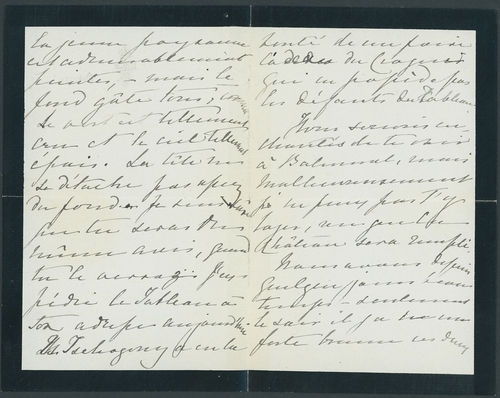 La jeune paysanne
est admirablement
peinte, – mais le
fond gâte tout, comme
le vert est tellement
cru et le ciel tellement
épais. La tête ne
se détache pas assez
du fond. Je suis sûre
que tu seras du
même avis, quand
tu le verras. Je
pédie le Tableau à
ton adresse aujourd'hui
Tschogony a eu la
bonté de me faire
cadeau du Croquis
qui ne possède pas
les défauts du Tableau
Nous serions en-
chantés de te voir
à Balmoral, mais
malheureusement
je ne puis pas t'y
loger, vu que le
Château sera rempli
Nous avons depuis
quelques jours beau
temps – seulement
le soir il y a une
forte brume ces